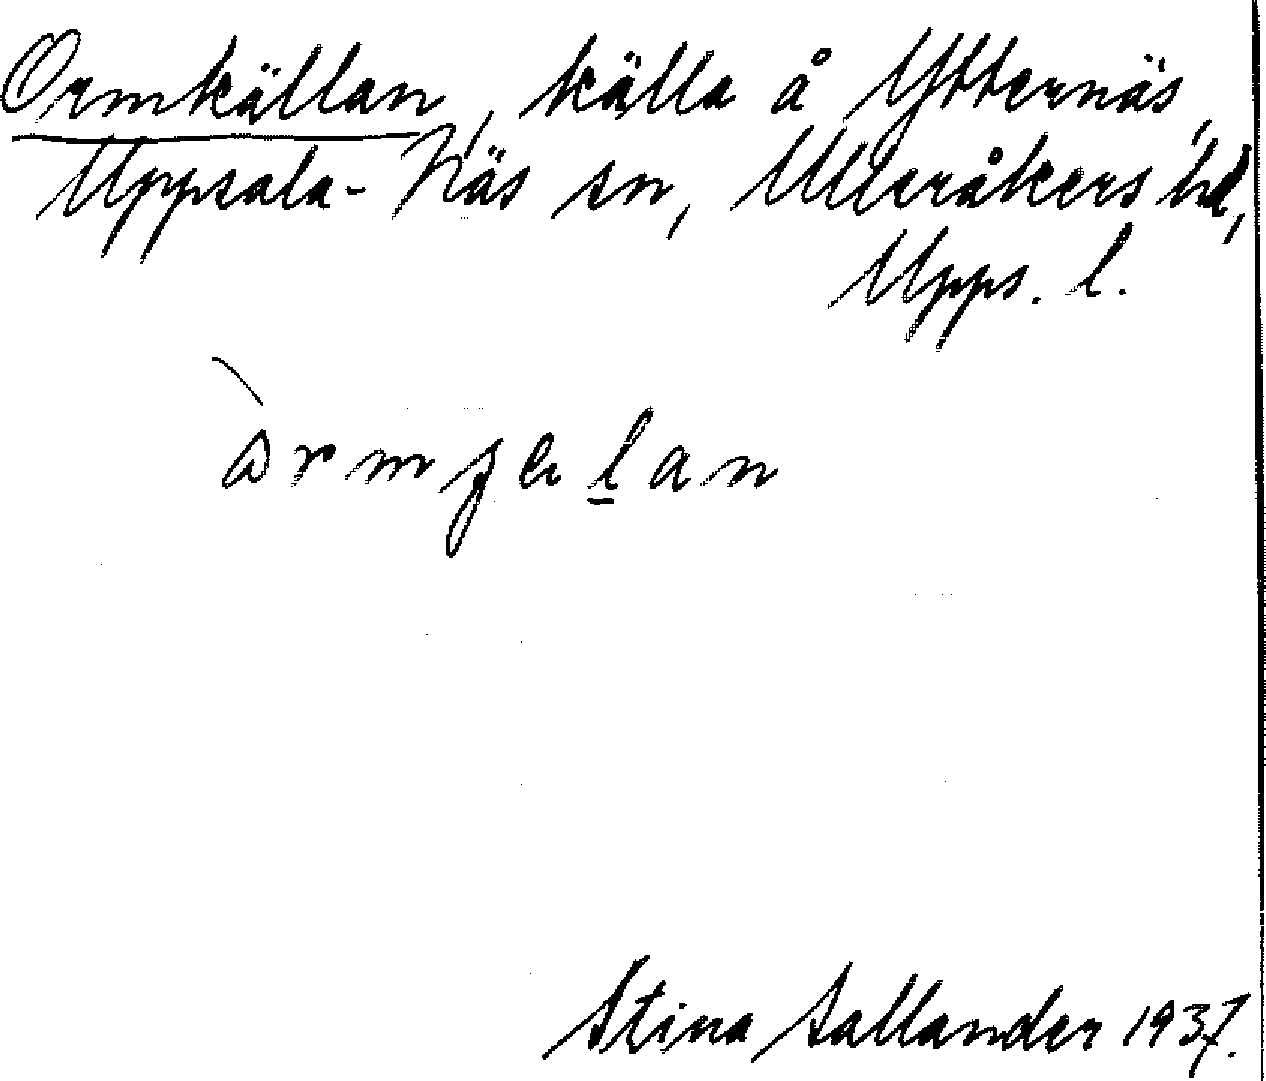 Ormkällan, källa å Ytternäs,
Uppsala-Näs sn, Ulleråkers hd,
Upps. l.
Stina Sallander 1937.